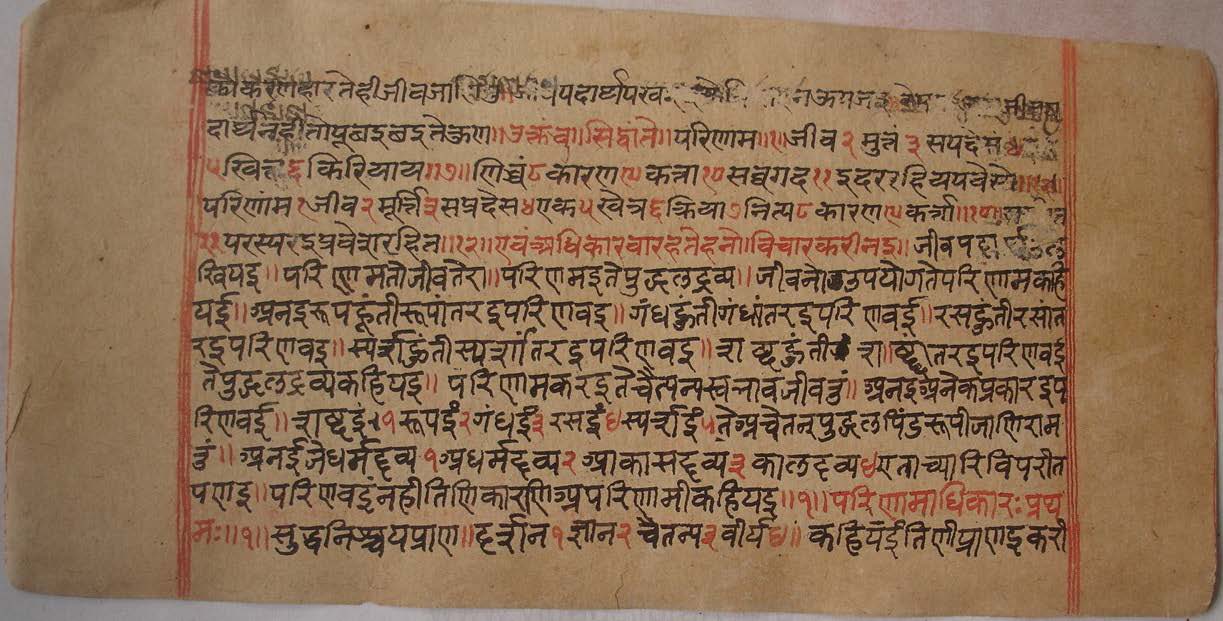 करणहार तेही जीव जा पदार्थ परव
दार्थ नही तो पूबइ बइ तेऊण ॥ उक्तं च ॥ सिद्धांते ॥ परिणाम ॥१॥ जीव २ मुत्तं ३ सपदेस ४
५ खित्त ६ किरियाय ॥७॥ णिच्चं ८ कारण ९ कत्ता १० सव्वगद ११ इदर रहियपवेसे
परिणांम १ जीव २ मूर्त्ति ३ सप्रदेस ४ एक ५ खेत्र ६ क्रिया ७ नित्य ८ कारण ९ कर्त्ता ॥१०॥
११ परस्परइ प्रवेशरहित ॥१२॥ एवं अधिकार बार हते हनो ॥ विचार करी नइ ॥ जीव पदार्थ
खियइ ॥ परिणामतो जीव तेरा ॥ परिणमइ ते पुद्गलद्रव्य ॥ जीवनो उपयोग ते परिणाम कहि
यई ॥ अनइ रूप हूंती रूपांतरइ परिणवइ ॥ गंध हुंती गंधांतरइ परिणवई ॥ रस हुंती रसांत
रइ परिणवइ ॥ स्पर्श हुंती स्पर्शांतरइ परिणवइ ॥ शब्द हुंती शब्दांतरइ परिणवई
ते पुद्गलद्रव्य कहियइ ॥ परिणाम करइ ते चैत्यन्य स्वभाव जीवनुं ॥ अनइ अनेक प्रकारइ प
रिणवई ॥ शब्दइं १ रूपइं २ गंधइं ३ रसइं ४ स्पर्शइं ५ ते अचैतन पुद्गल पिंड रूपी जाणि राम
नुं ॥ अनई जे धर्मद्रव्य १ अधर्मद्रव्य २ आकासद्रव्य ३ कालद्रव्य ४ एना च्यारि विपरीत
पणइ ॥ परिणवइं नही तिणि कारणि अपरिणामी कहियइ ॥१॥ परिणामाधिकारः प्रथ
मः ॥१॥ सुद्ध निश्चयप्राण ॥ दर्शन १ ज्ञान २ चैतन्य ३ वीर्य ४ ॥ कहियइं तिणी प्राणइ करी